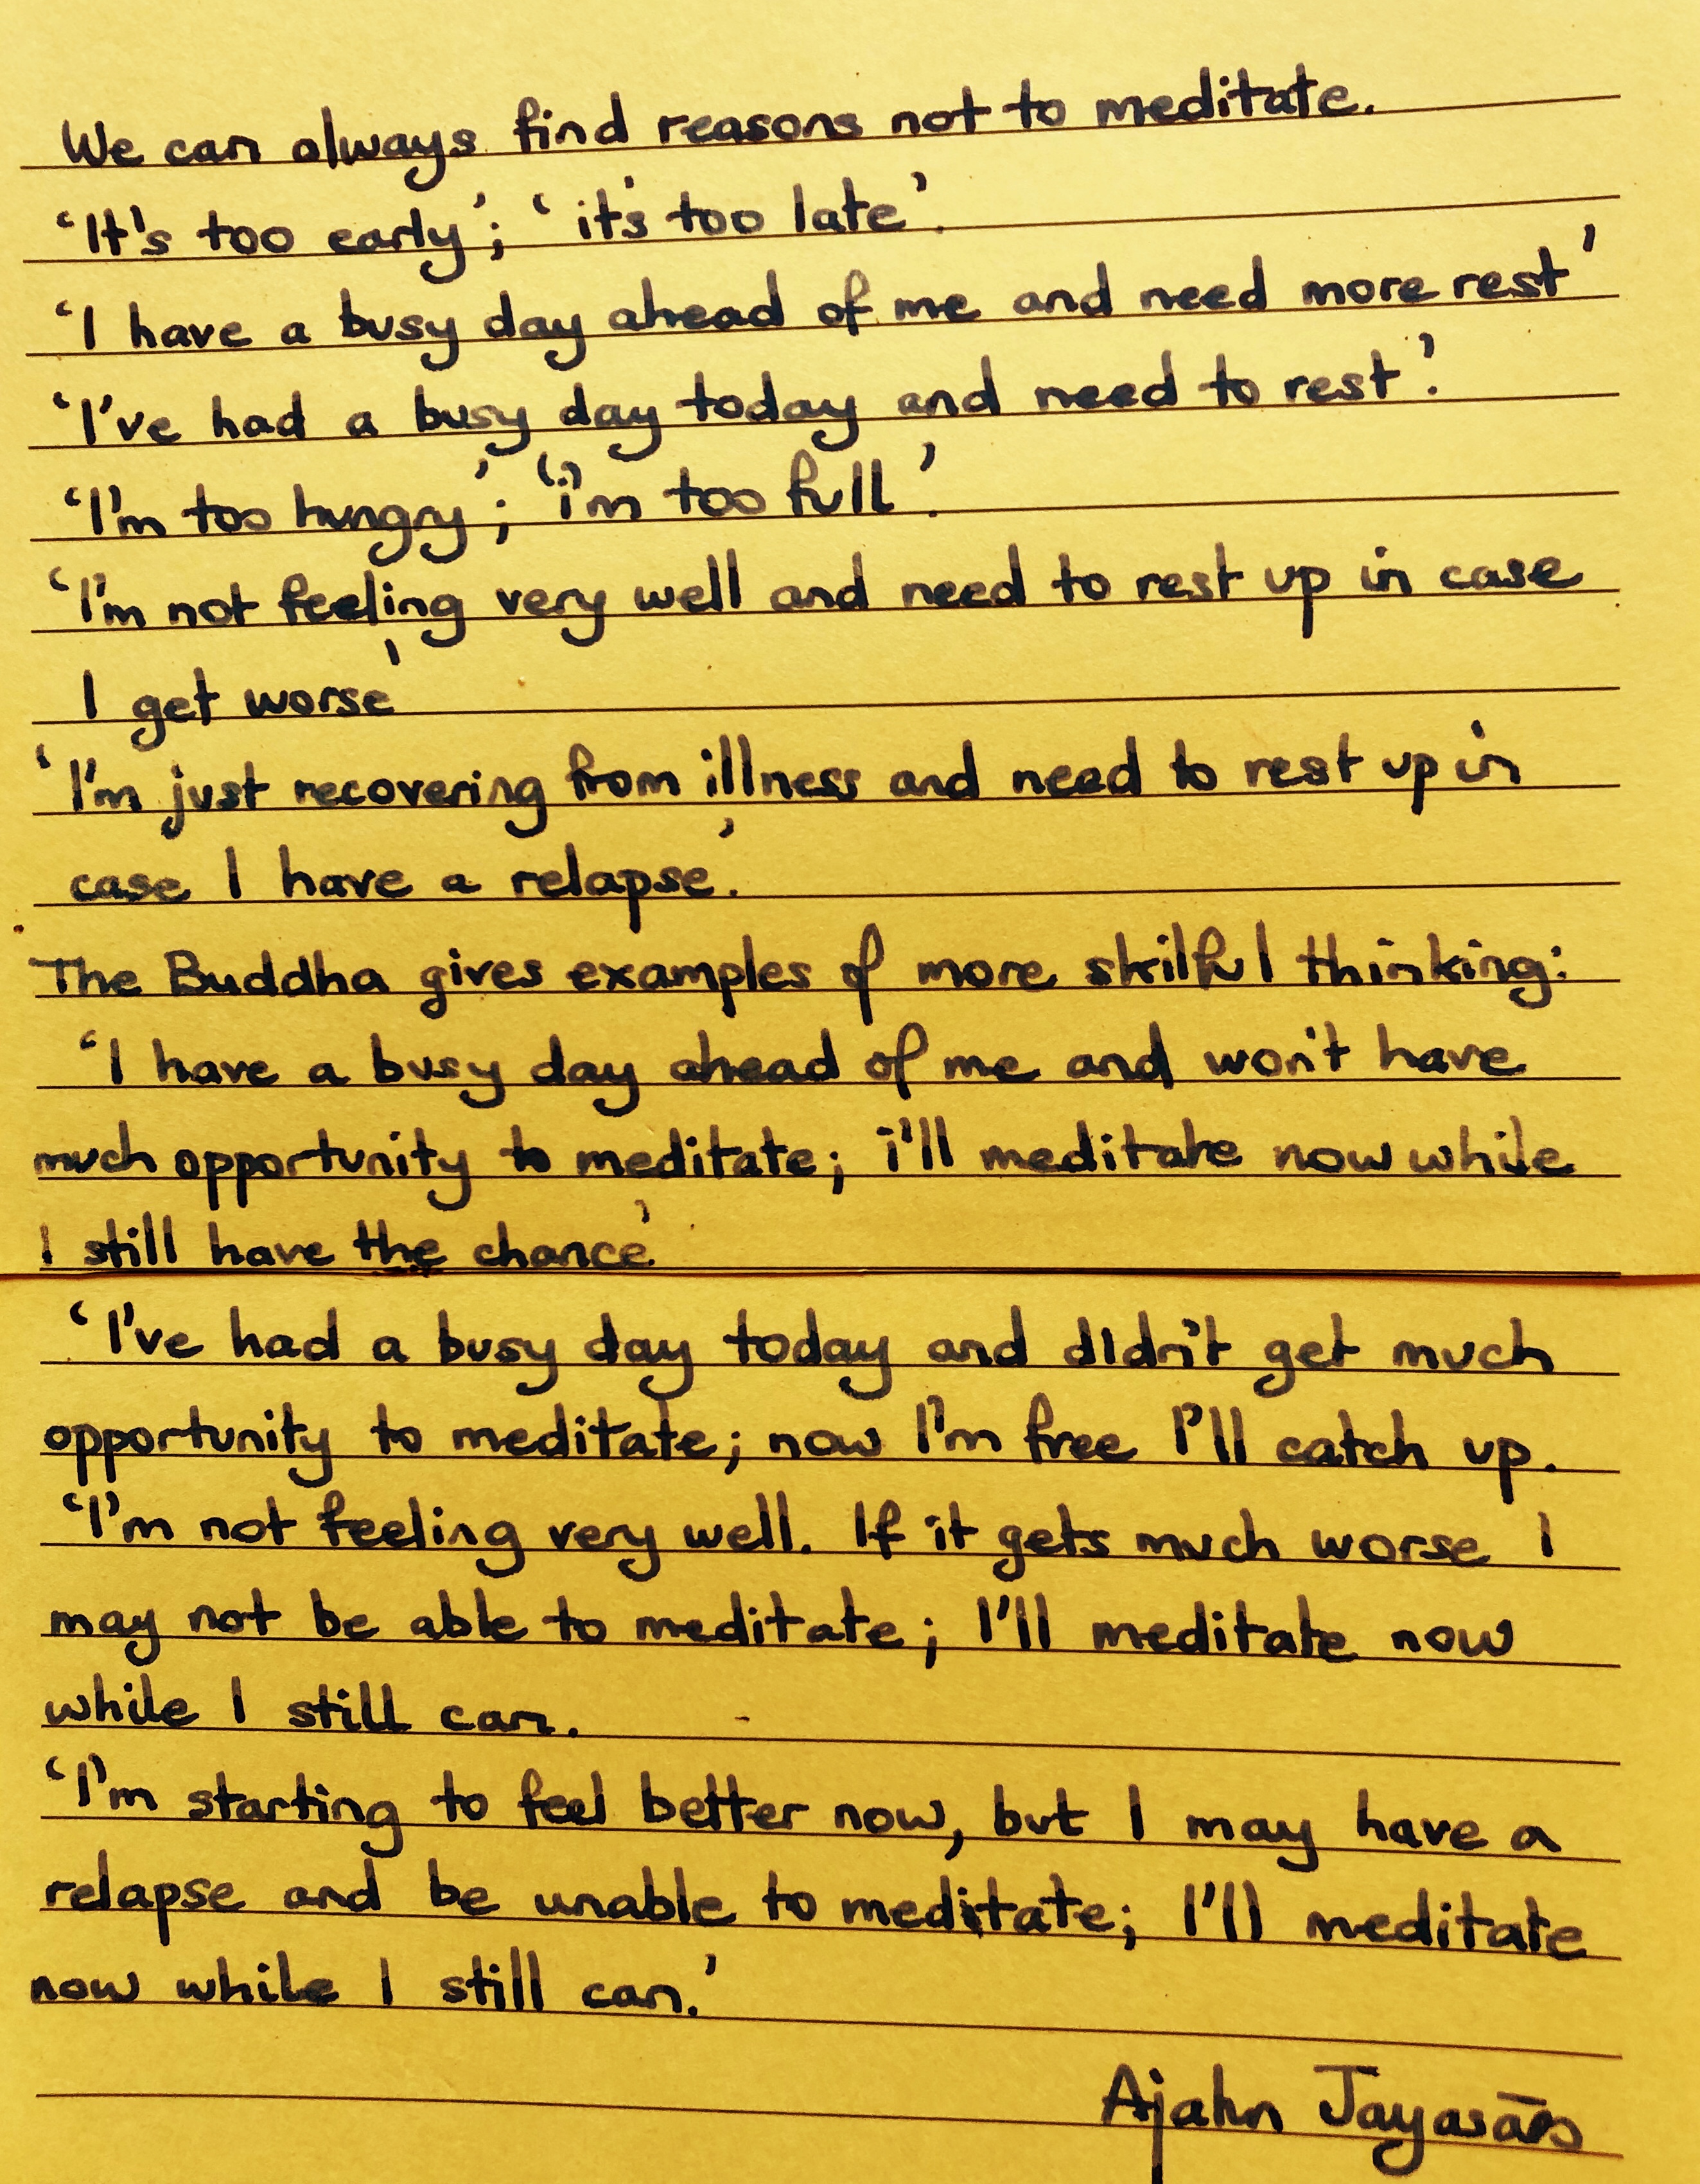 We can always find reasons not to meditate.
'It's too early'; 'it's too late'.
'I have a busy day ahead of me and need more rest'
'I've had a busy day today and need to rest'.
'I'm too hungry'; 'i'm too full'.
'I'm not feeling very well and need to rest up in case
I get worse'
'I'm just recovering from illness and need to rest up in
case I have a relapse'.
The Buddha gives examples of more skilful thinking:
'I have a busy day ahead of me and won't have
much opportunity to meditate; i'll meditate now while
I still have the chance.'
'I've had a busy day today and didn't get much
opportunity to meditate; now I'm free I'll catch up.
'I'm not feeling very well. If it gets much worse I
may not be able to meditate; I'll meditate now
while I still can.
'I'm starting to feel better now, but I may have a
relapse and be unable to meditate; I'll meditate
now while I still can.'
Ajahn Jayasāro